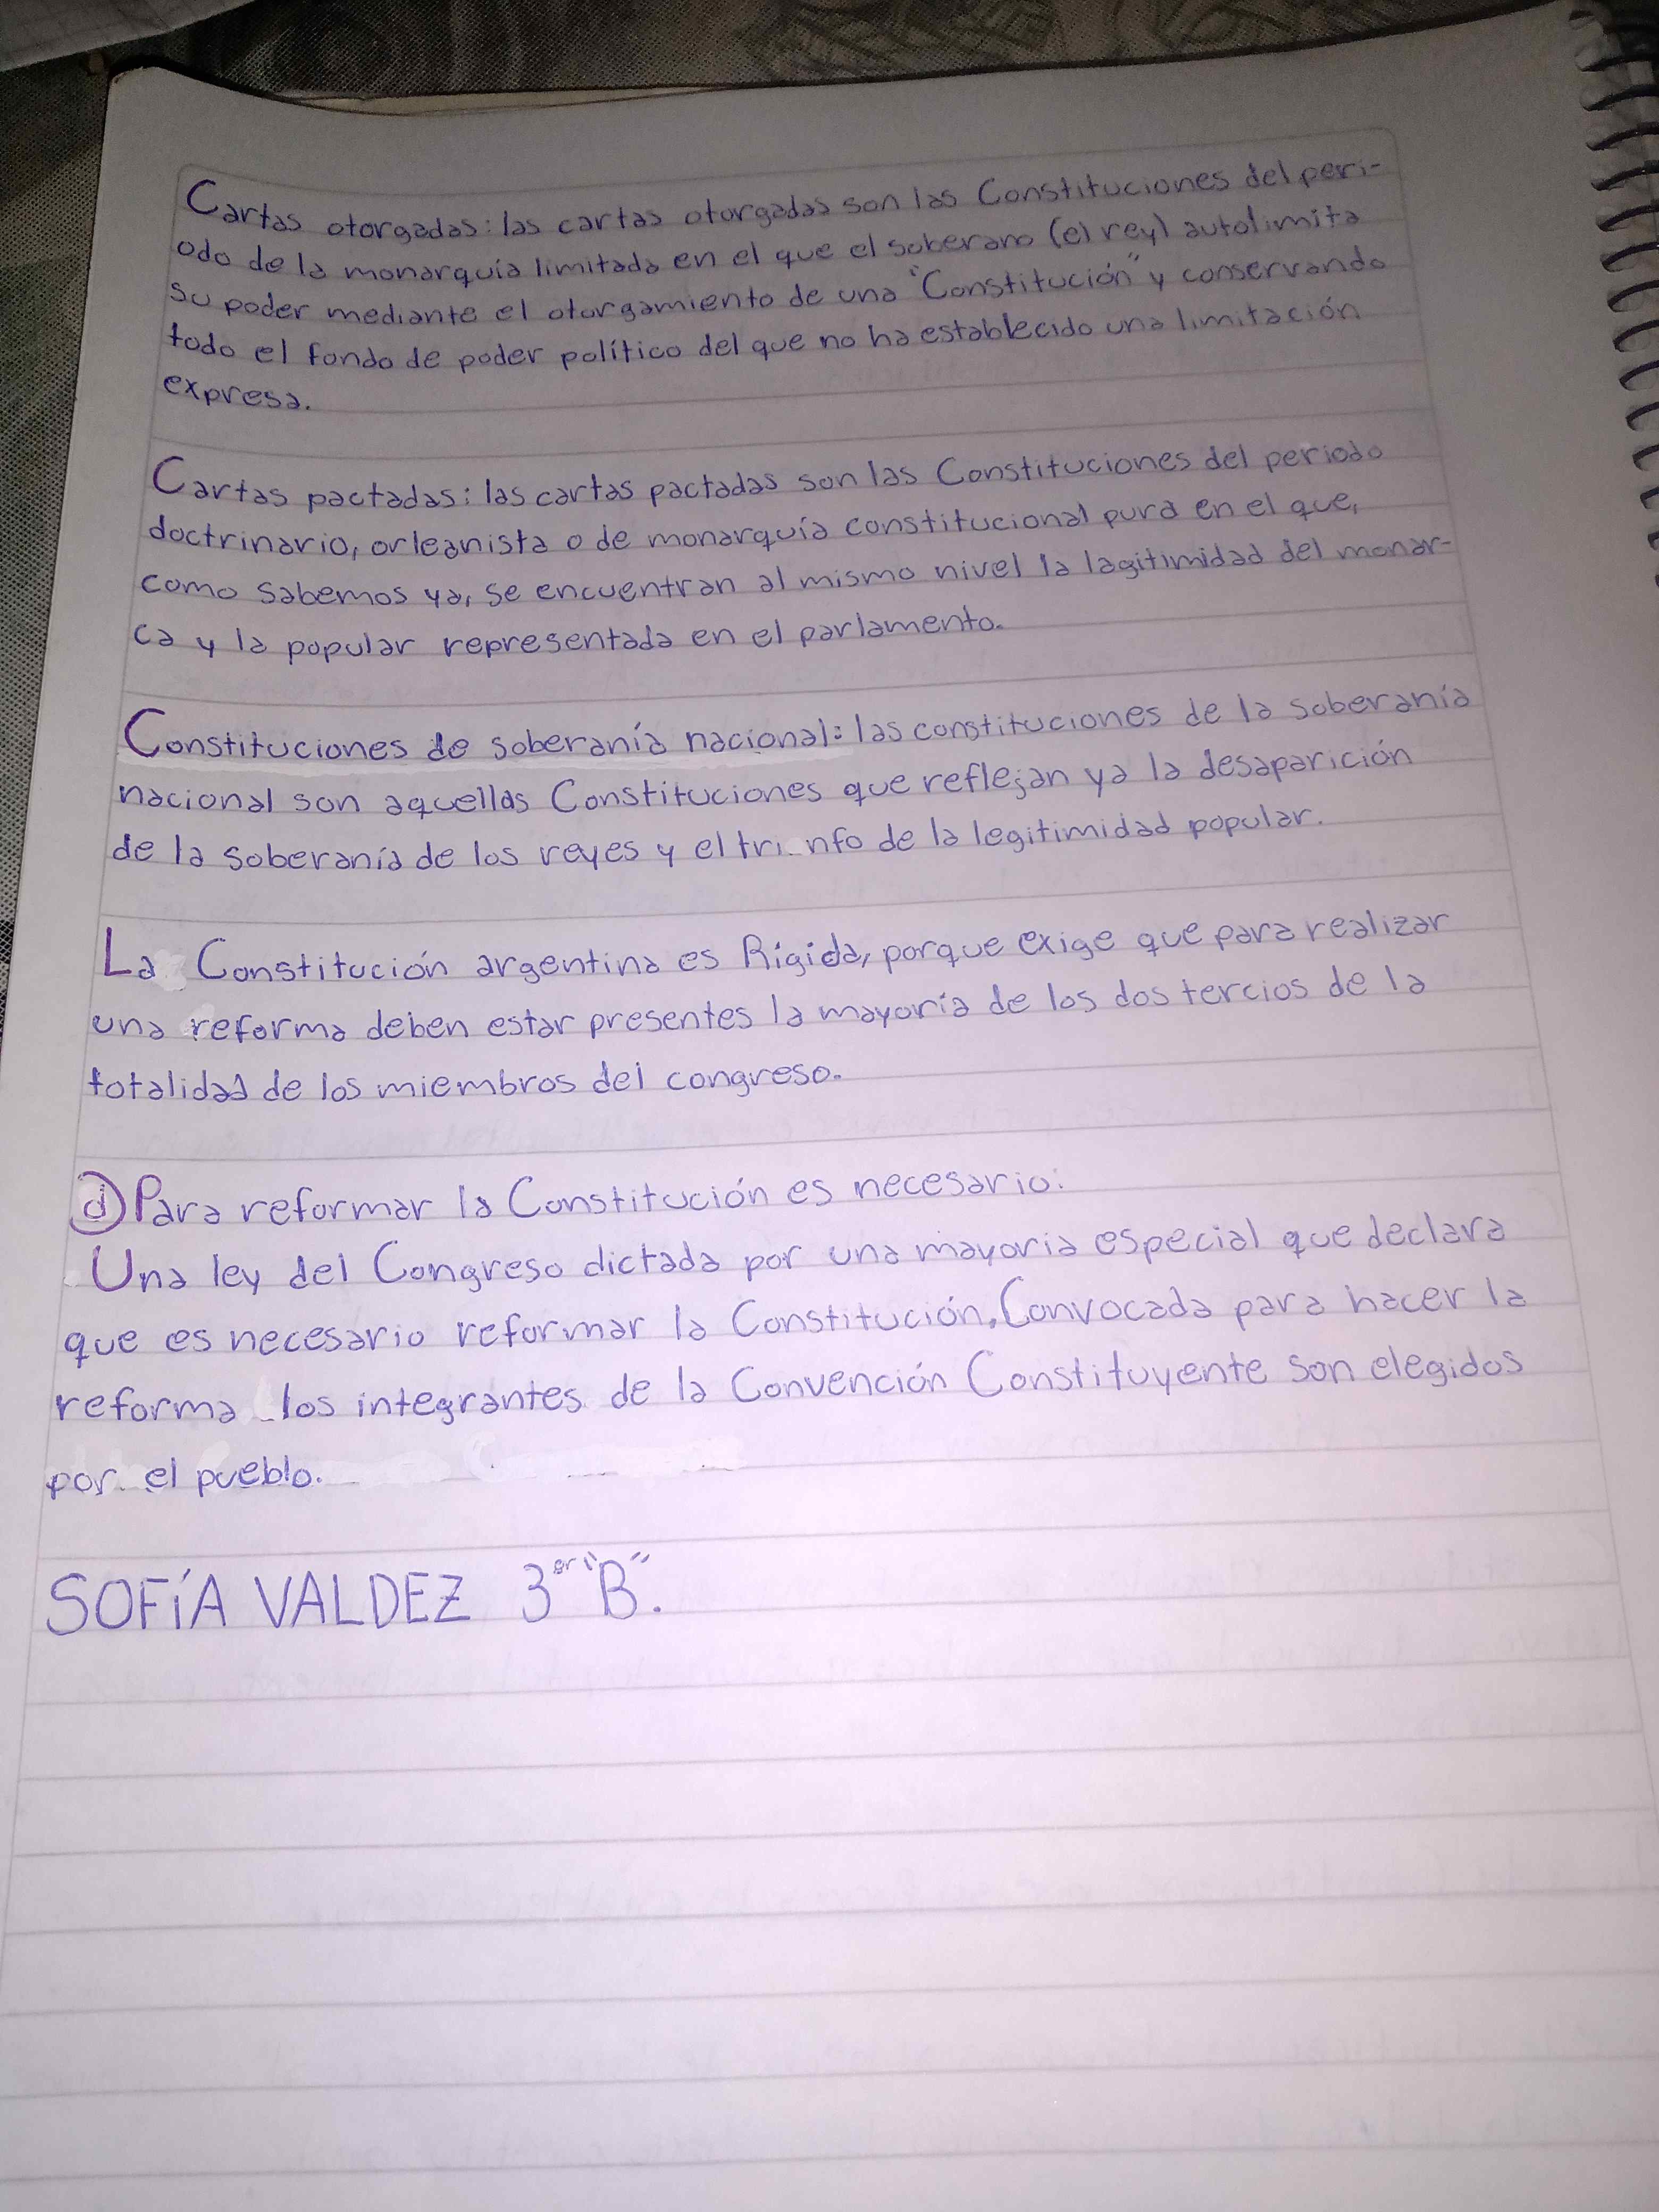 Cartas otorgadas: las cartas otorgadas son las Constituciones del peri-
odo de la monarquía limitada en el que el soberano (el rey) autolimita
su poder mediante el otorgamiento de una "Constitución" y conservando
todo el fondo de poder político del que no ha establecido una limitación
expresa.
Cartas pactadas: las cartas pactadas son las Constituciones del periodo
doctrinario, orleanista o de monarquía constitucional pura en el que,
como sabemos ya, se encuentran al mismo nivel la lagitimidad del monar-
ca y la popular representada en el parlamento.
Constituciones de soberanía nacional: las constituciones de la soberanía
nacional son aquellas Constituciones que reflejan ya la desaparición
de la soberanía de los reyes y el tri nfo de la legitimidad popular.
La Constitución argentina es Rígida, porque exige que para realizar
una reforma deben estar presentes la mayoría de los dos tercios de la
totalidad de los miembros del congreso.
d) Para reformar la Constitución es necesario:
Una ley del Congreso dictada por una mayoria especial que declara
que es necesario reformar la Constitución. Convocada para hacer la
reforma los integrantes de la Convención Constituyente son elegidos
por el pueblo.
SOFÍA VALDEZ 3er "B".